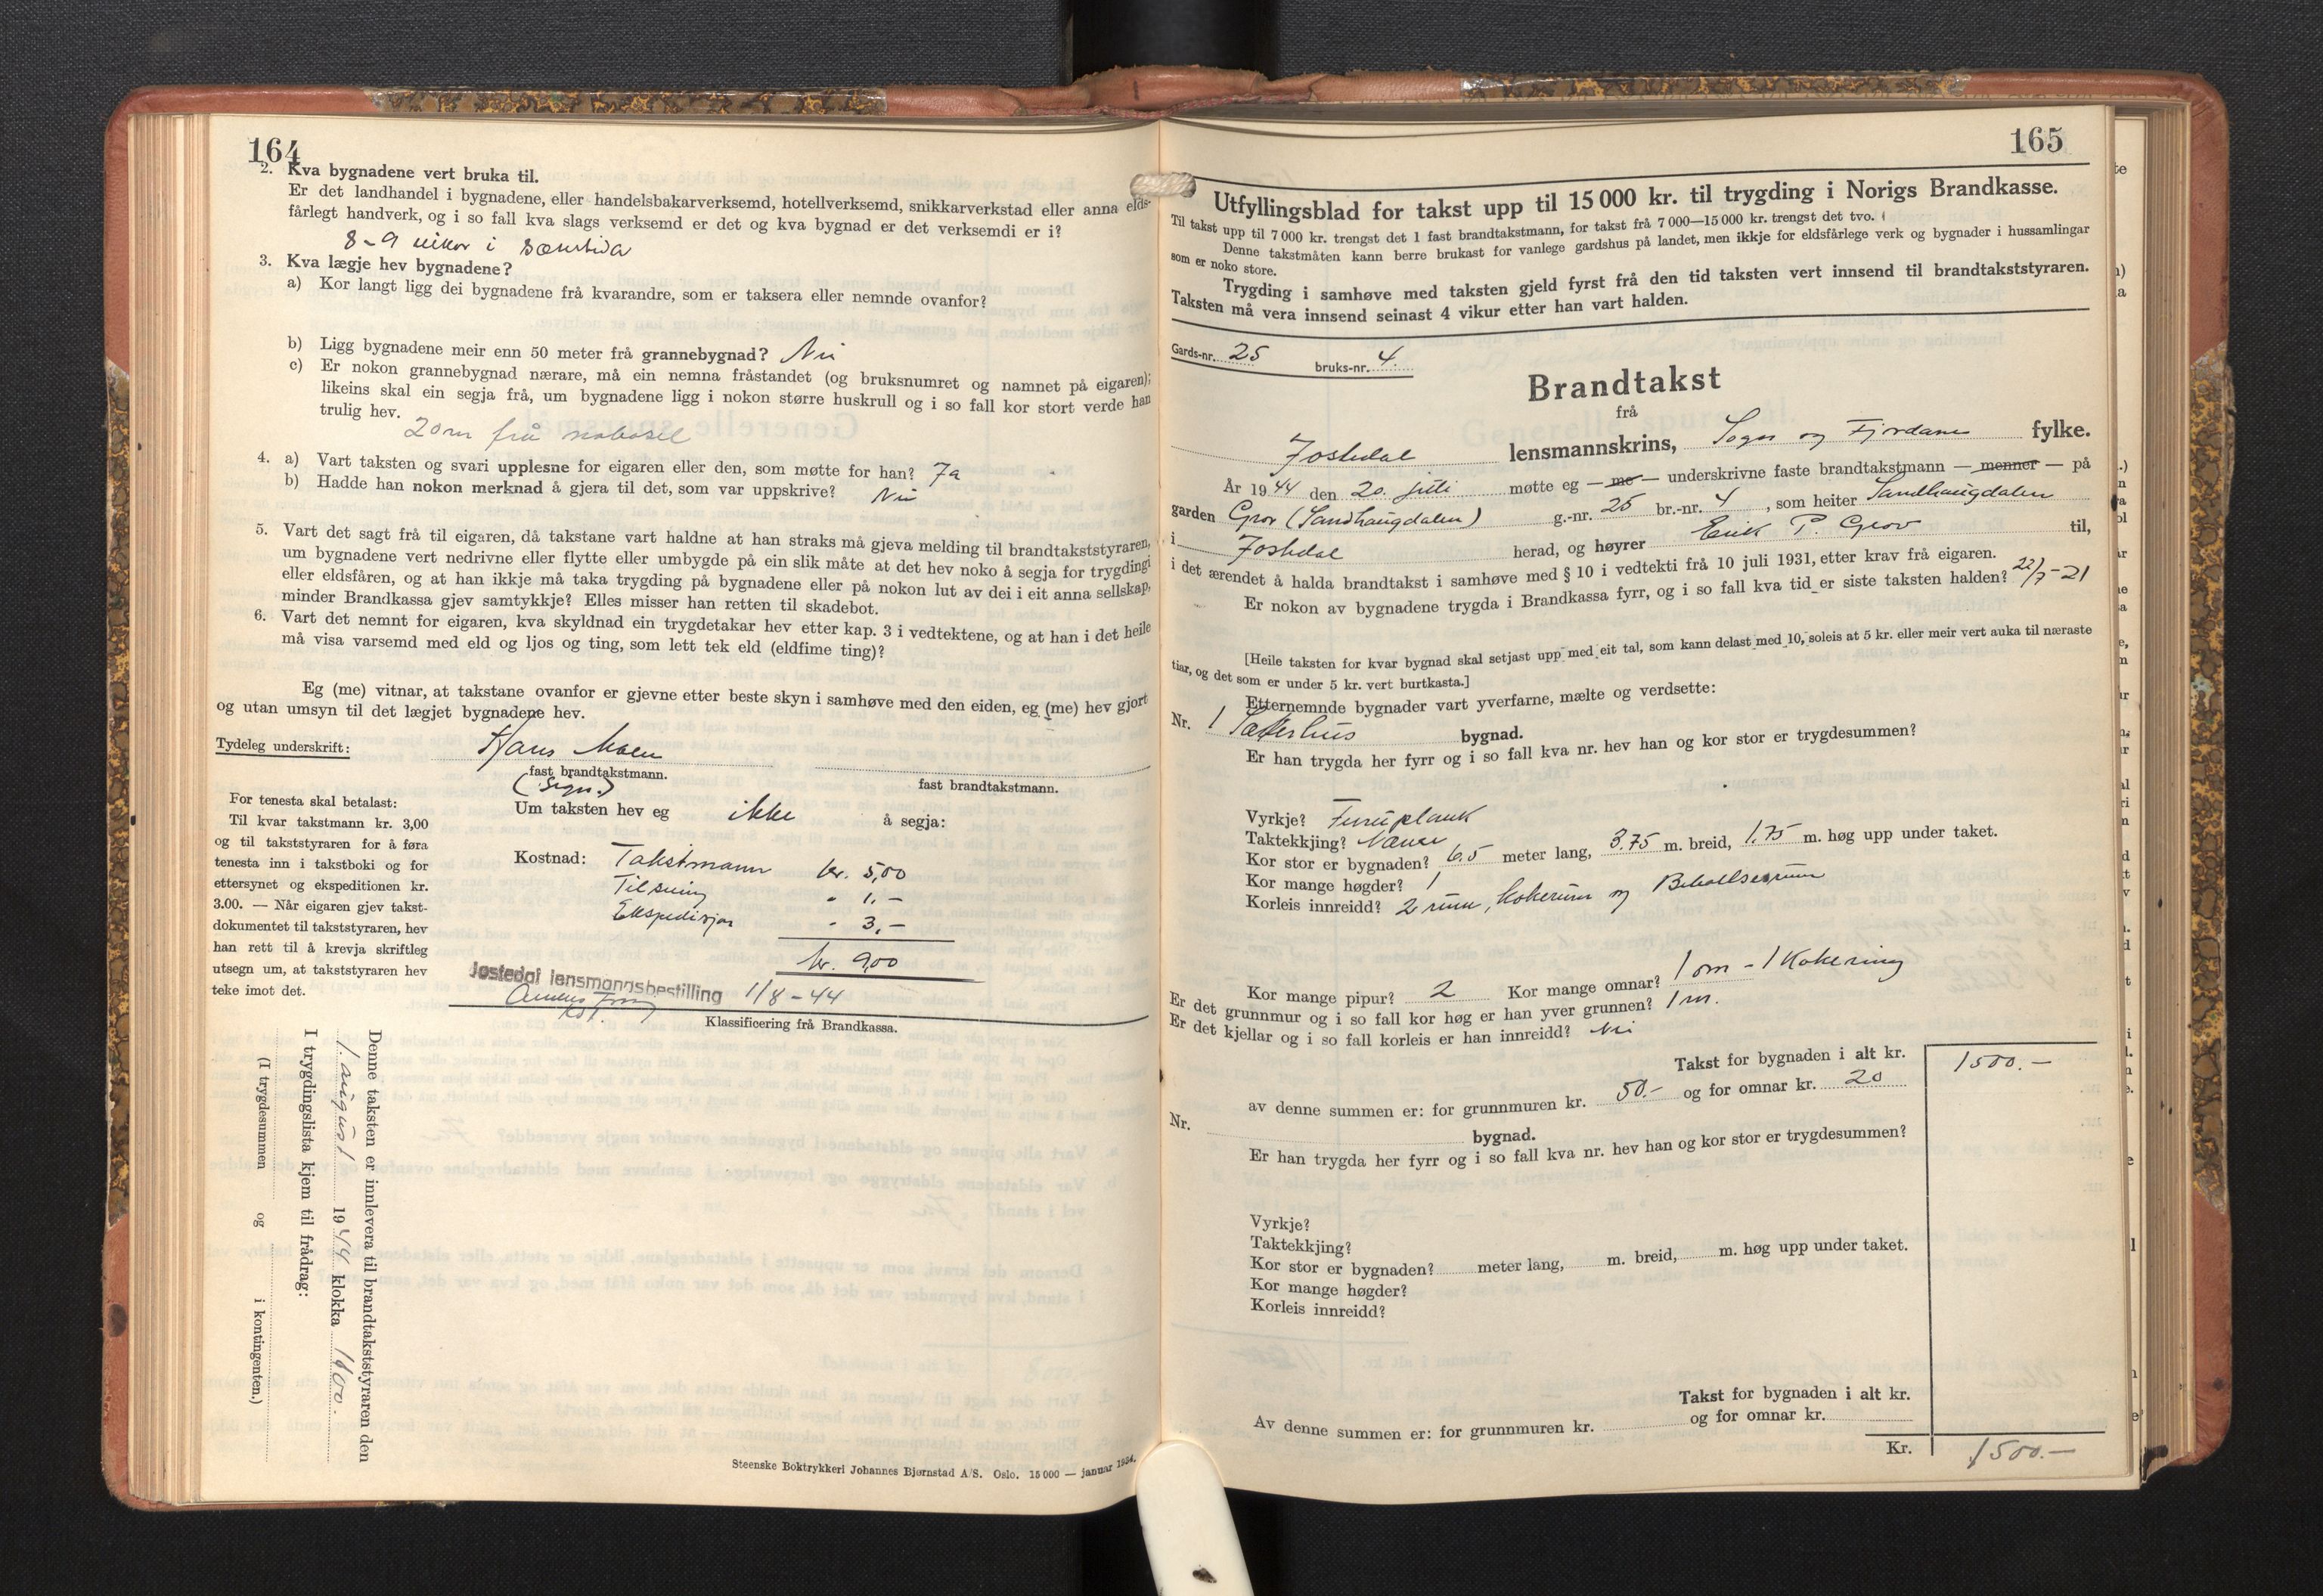 164
2. Kva bygnadene vert bruka til.
Er det landhandel i bygnadene, eller handelsbakarverksemd, hotellverksemd, snikkarverkstad eller anna elds-
fårlegt handverk, og i so fall kva slags verksemd er det og kva bygnad er det verksemdi er i?
8-9 vikor i
3. Kva lægje hev bygnadene?
a) Kor langt ligg dei bygnadene frå kvarandre, som er taksera eller nemnde ovanfor?
b) Ligg bygnadene meir enn 50 meter frå grannebygnad? Nei
c) Er nokon grannebygnad nærare, må ein nemna fråstandet (og bruksnumret og namnet på eigaren);
likeins skal ein segja frå, um bygnadene ligg i nokon større huskrull og i so fall kor stort verde han
trulig hev.
20 m frå nabosel
4. a) Vart taksten og svari upplesne for eigaren eller den, som møtte for han? Ja
b) Hadde han nokon merknad å gjera til det, som var uppskrive? Nei
5. Vart det sagt frå til eigaren, då takstane vart haldne at han straks må gjeva melding til brandtakststyraren,
um bygnadene vert nedrivne eller flytte eller umbygde på ein slik måte at det hev noko å segja for trygdingi
eller eldsfåren, og at han ikkje må taka trygding på bygnadene eller på nokon lut av dei i eit anna sellskap,
minder Brandkassa gjev samtykkje? Elles misser han retten til skadebot.
6. Vart det nemnt for eigaren, kva skyldnad ein trygdetakar hev etter kap. 3 i vedtektene, og at han i det heile
må visa varsemd med eld og ljos og ting, som lett tek eld (eldfime ting)?
Eg (me) vitnar, at takstane ovanfor er gjevne etter beste skyn i samhøve med den eiden, eg (me) hev gjort
og utan umsyn til det lægjet bygnadene hev.
Tydeleg underskrift: Hans Moen
fast brandtakstmann. fast brandtakstmann.
(Sign.)
Um taksten hev eg ikke å segja:
For tenesta skal betalast:
Til kvar takstmann kr. 3,00
og til takststyraren for å føra
tenesta inn i takstboki og for
ettersynet og ekspeditionen kr.
3.00. — Når eigaren gjev takst-
dokumentet til takststyraren, hev
han rett til å krevja skriftleg
utsegn um, at takststyraren hev
teke imot det.
Kostnad: Takstmann kr. 5,00
Tilsuing " 1,-
Ekspedisjon " 3,-
kr. 9,00
Jostedal lensmannsbestilling 1/8-44
Klassificering frå Brandkassa.
Denne taksten er innlevera til brandtakststyraren den
1. august 1944 klokka 1600.
I trygdingslista kjem til frådrag:
(I trygdesummen og i kontingenten.)
Steenske Boktrykkeri Johannes Bjørnstad A/S. Oslo. 15 000 — januar 1934.
165
Utfyllingsblad for takst upp til 15 000 kr. til trygding i Norigs Brandkasse.
Til takst upp til 7 000 kr. trengst det 1 fast brandtakstmann, for takst frå 7 000—15 000 kr. trengst det tvo.
Denne takstmåten kann berre brukast for vanlege gardshus på landet, men ikkje for eldsfårlege verk og bygnader i hussamlingar
som er noko store.
Trygding i samhøve med taksten gjeld fyrst frå den tid taksten vert innsend til brandtakststyraren.
Taksten må vera innsend seinast 4 vikur etter han vart halden.
Gards-nr. 25 bruks-nr. 4.
Brandtakst
frå
Jostedal lensmannskrins, Sogn og Fjordane fylke.
År 1944 den 20. juli møtte eg — me — underskrivne faste brandtakstmann — menner — på
garden Grov (Sandhaugdalen) g.-nr. 25 br.-nr. 4, som heiter Sandhaugdalen
i Jostedal herad, og høyrer Erik P. Grov til,
i det ærendet å halda brandtakst i samhøve med § 10 i vedtekti frå 10 juli 1931, etter krav frå eigaren.
Er nokon av bygnadene trygda i Brandkassa fyrr, og i so fall kva tid er siste taksten halden? 22/7-21
[Heile taksten for kvar bygnad skal setjast upp med eit tal, som kann delast med 10, soleis at 5 kr. eller meir vert auka til næraste
tiar, og det som er under 5 kr. vert burtkasta.]
Etternemnde bygnader vart yverfarne, mælte og verdsette:
Nr. 1 Sæterhus bygnad.
Er han trygda her fyrr og i so fall kva nr. hev han og kor stor er trygdesummen?
Vyrkje? Furuplank
Taktekkjing? Never
Kor stor er bygnaden? 6.5 meter lang, 3.75 m. breid, 1.75 m. høg upp under taket.
Kor mange høgder? 1
Korleis innreidd? 2 rum, kokerum og Behollserum
Kor mange pipur? 2 Kor mange omnar? 1 om - 1 Kokering
Er det grunnmur og i so fall kor høg er han yver grunnen? 1 m.
Er det kjellar og i so fall korleis er han innreidd? Nei
Takst for bygnaden i alt kr. 1500.-
av denne summen er: for grunnmuren kr. 50.- og for omnar kr. 20
Nr. bygnad.
Er han trygda her fyrr og i so fall kva nr. hev han og kor stor er trygdesummen?
Vyrkje?
Taktekkjing?
Kor stor er bygnaden? meter lang, m. breid, m. høg upp under taket.
Kor mange høgder?
Korleis innreidd?
Takst for bygnaden i alt kr.
Av denne summen er: for grunnmuren kr. og for omnar kr.
Kr. 1500.-